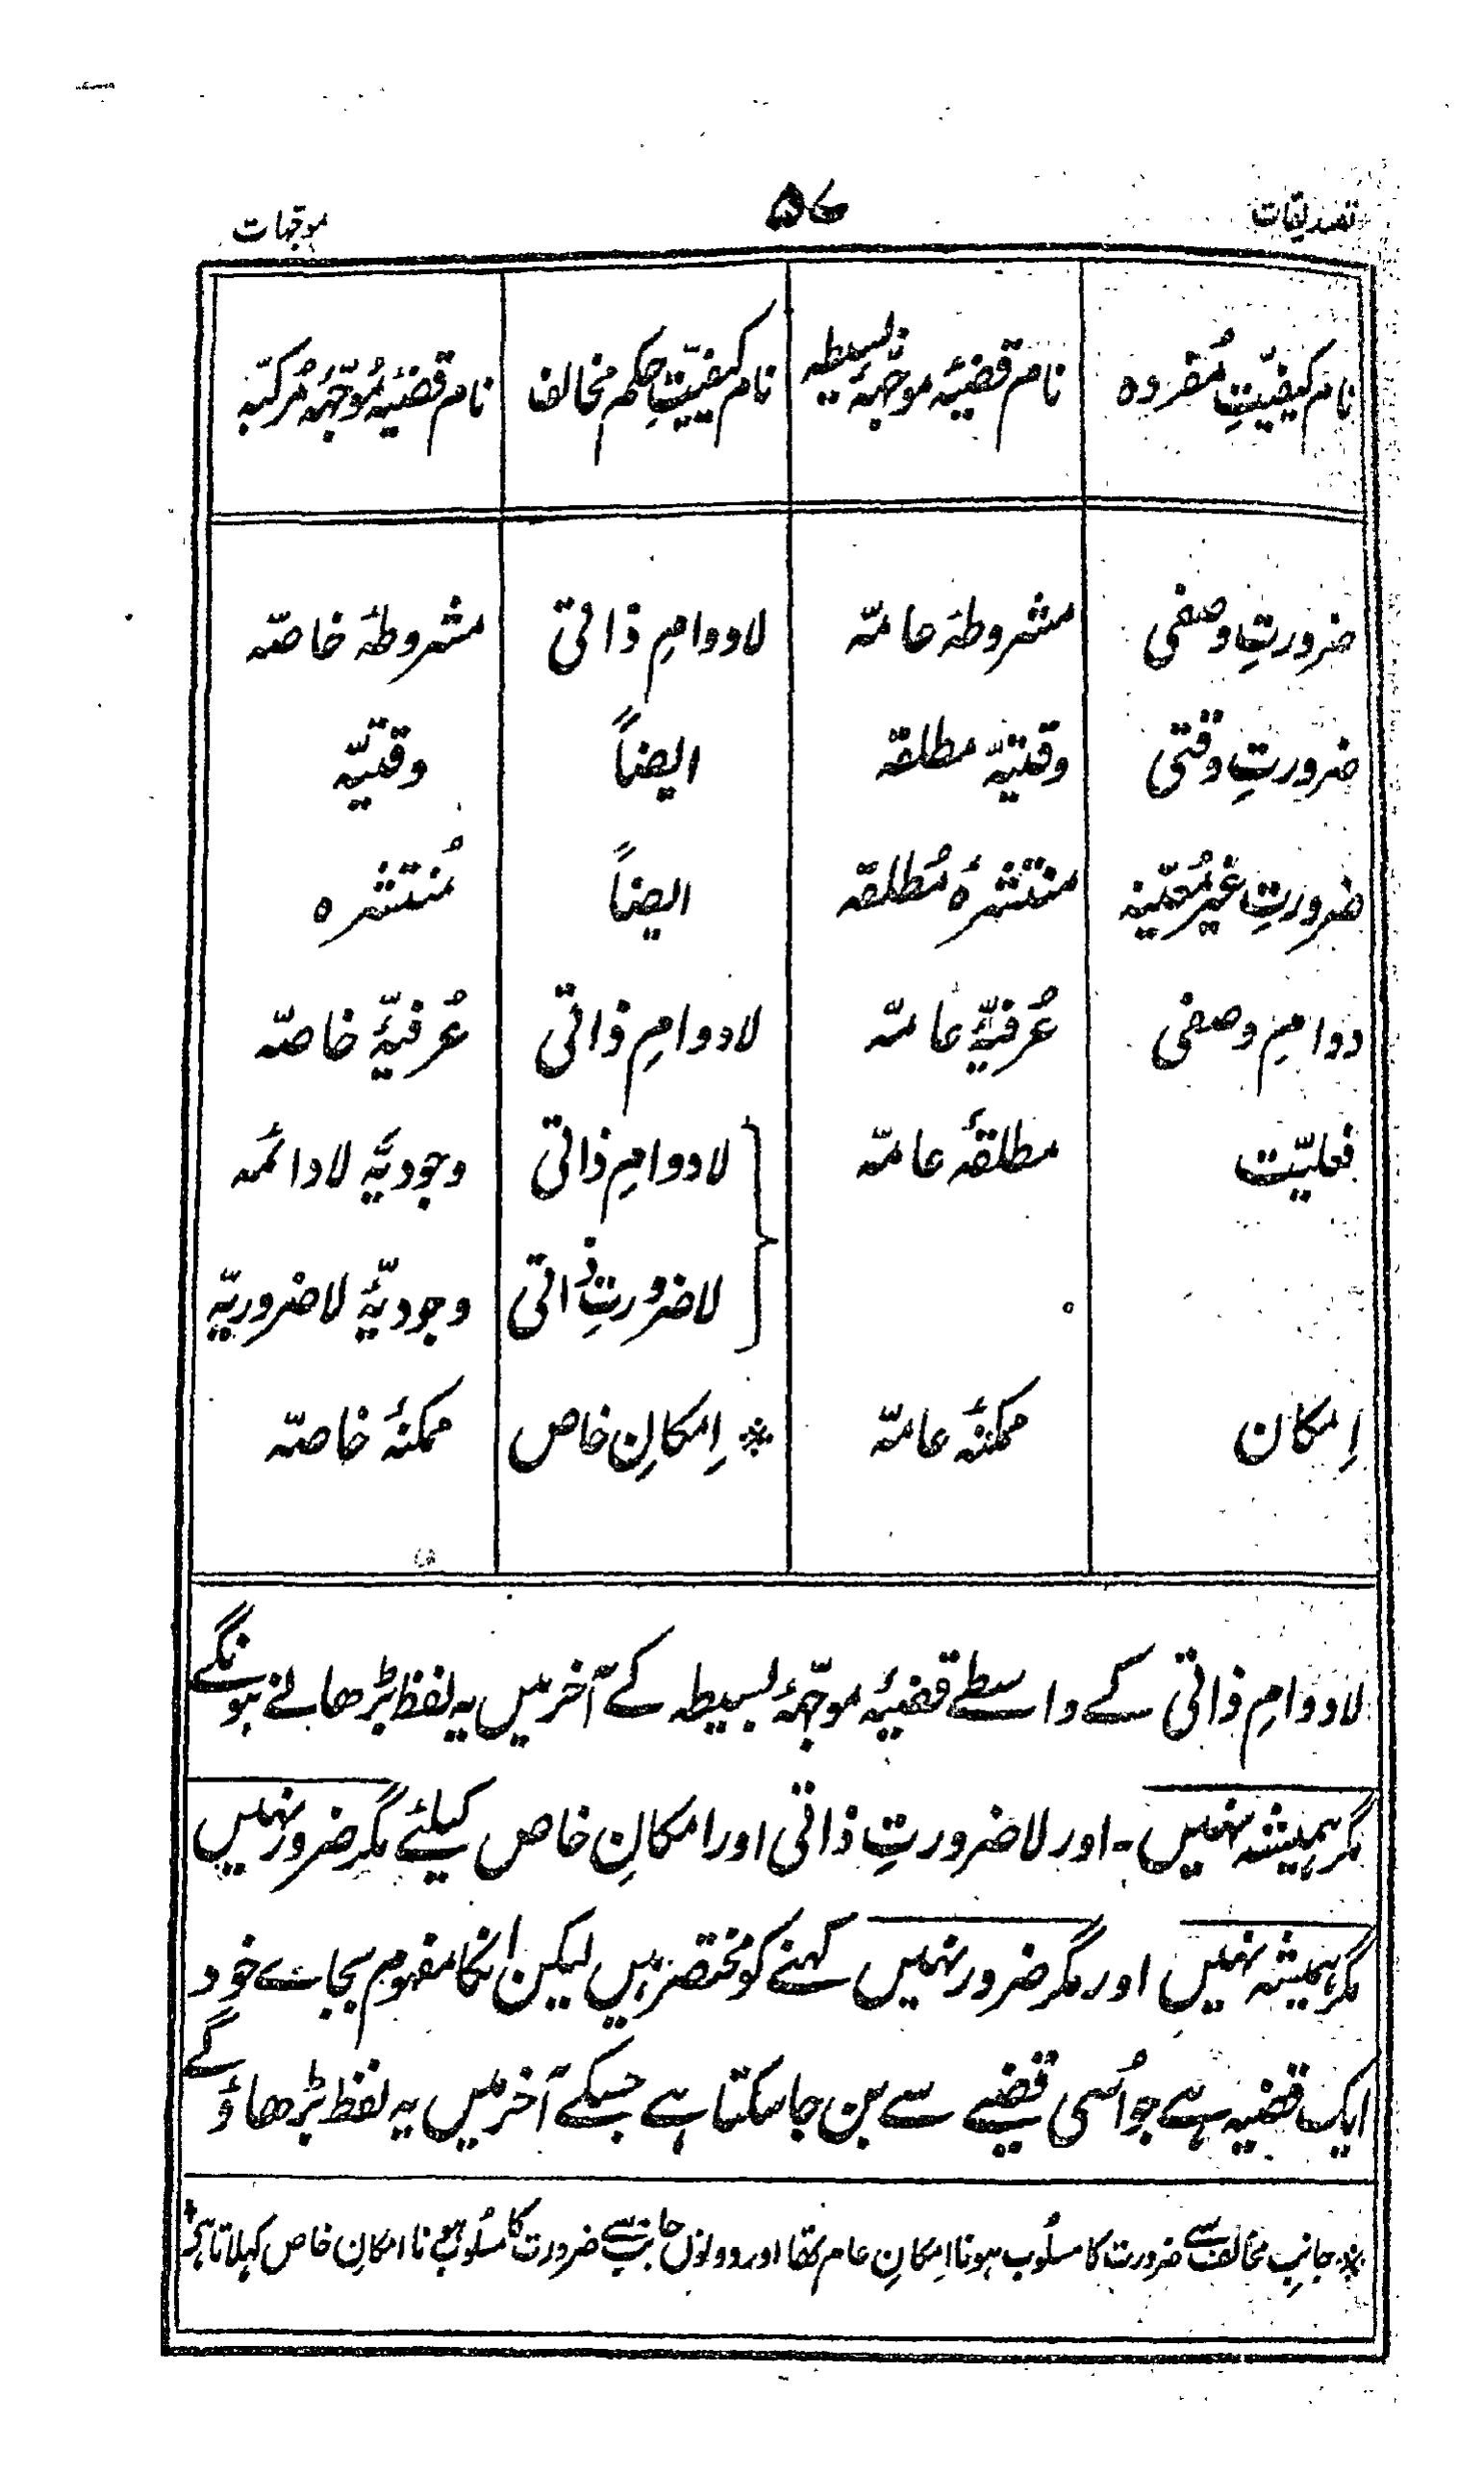 تصدیقات ۵۷ موجّہات
نام کیفیّتِ مُفردہ نام قضیّۂ موجّہۂ بسیطہ نام کیفیّتِ حکم مخالف نام قضیّۂ مُوجّہۂ مُرکبّہ
ضرورتِ وصفی مشروطۂ عامّہ لادوامِ ذاتی مشروطۂ خاصّہ
ضرورتِ وقتی وقتیّہ مطلقہ ایضاً وقتیّہ
ضرورتِ غیر مُعیّنہ منتشرۂ مُطلقہ ایضاً مُنتشرہ
دوامِ وصفی عُرفیّۂ عامّہ لادوامِ ذاتی عُرفیّۂ خاصّہ
فعلیّت مطلقۂ عامّہ لادوامِ ذاتی وجودیّۂ لادائمہ
لاضرورتِ ذاتی وجودیّۂ لاضروریّہ
اِمکان ممکنۂ عامّہ * اِمکانِ خاص ممکنۂ خاصّہ
لادوامِ ذاتی کے واسطے قضیّۂ موجّہۂ بسیطہ کے آخر میں یہ لفظ بڑھانے ہونگے
مگر ہمیشہ نہیں - اور لاضرورتِ ذاتی اور امکانِ خاص کیلئے مگر ضرور نہیں
مگر ہمیشہ نہیں اور مگر ضرور نہیں کہنے کو مختصر ہیں لیکن اِنکا مفہوم بجاے خود
ایک قضیہ ہے جو اُسی قضیے سے بن جا سکتا ہے جسکے آخر میں یہ لفظ بڑھاؤ گے
* جانبِ مخالف سے ضرورت کا مسلُوب ہونا اِمکانِ عام تھا اور دونوں جانب سے ضرورت کا مسلُوب ہونا امکانِ خاص کہلاتا ہے